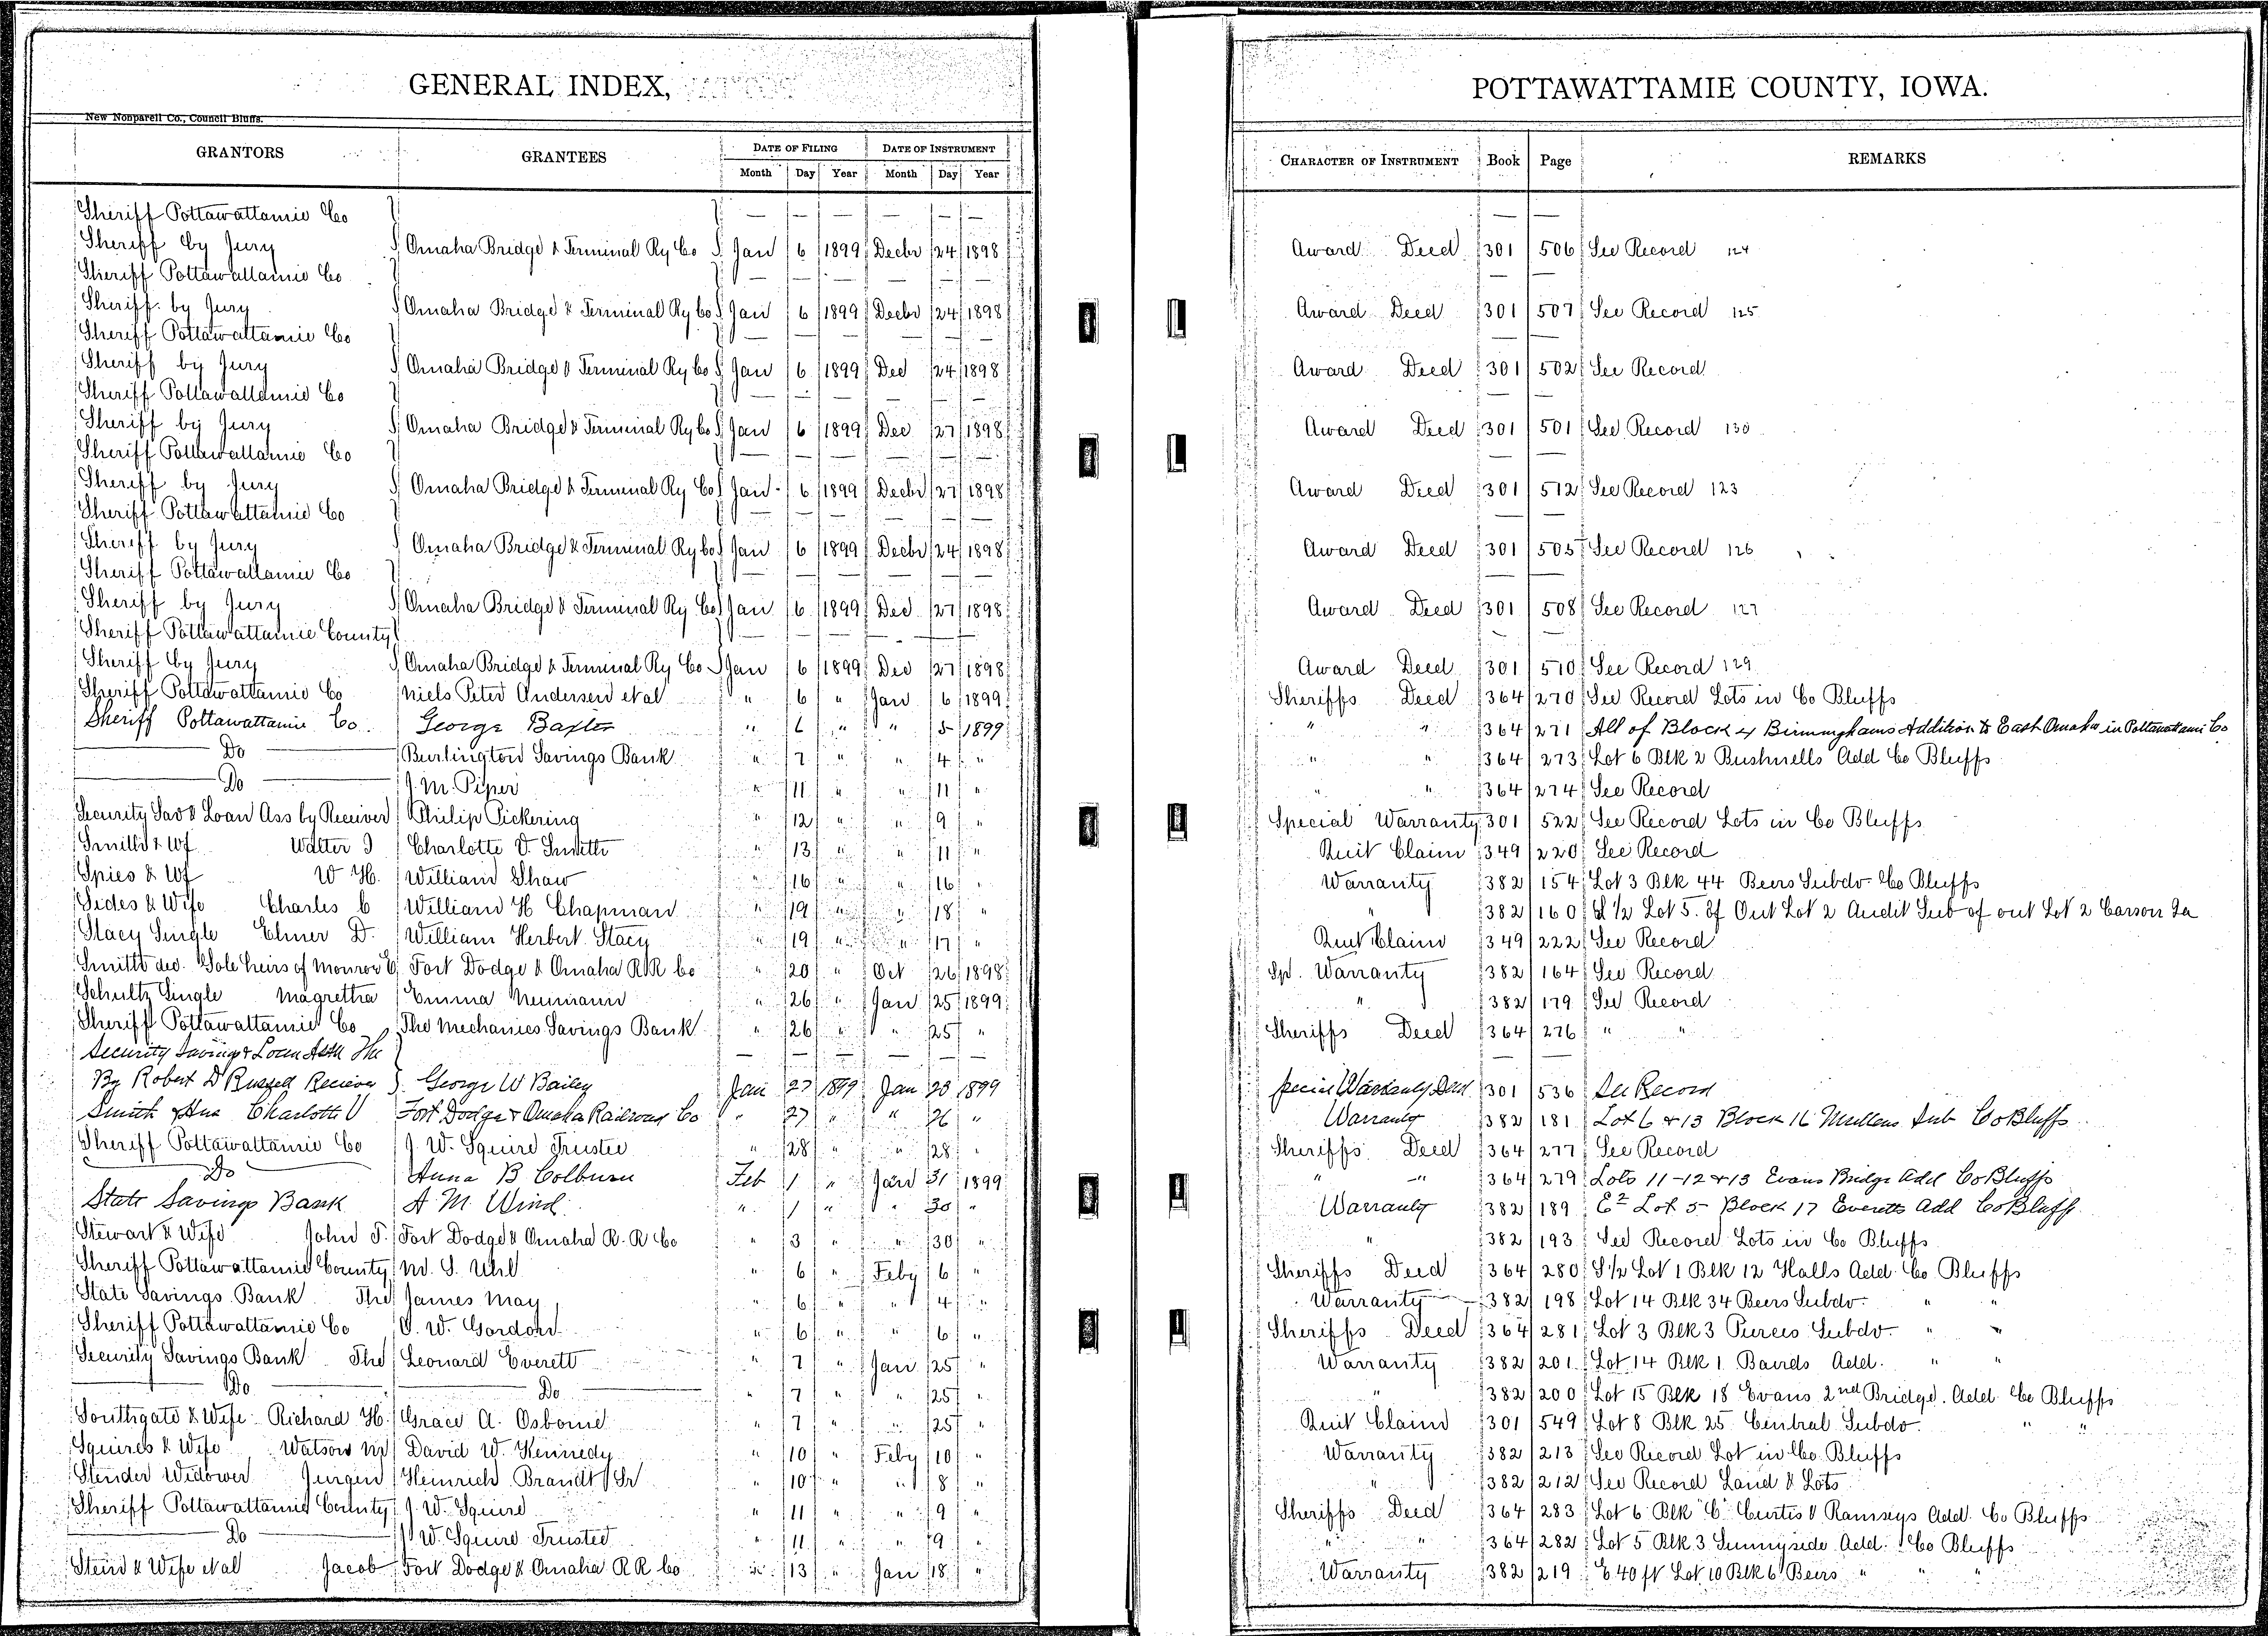 GENERAL INDEX,
New Nonpareil Co., Council Bluffs.
GRANTORS GRANTEES DATE OF FILING DATE OF INSTRUMENT
Month Day Year Month Day Year
Sheriff Pottawattamie Co — — — — — —
Sheriff by Jury Omaha Bridge & Terminal Ry Co Jan 6 1899 Decbr 24 1898
Sheriff Pottawattamie Co — — — — — —
Sheriff by Jury Omaha Bridge & Terminal Ry Co Jan 6 1899 Decbr 24 1898
Sheriff Pottawattamie Co — — — — — —
Sheriff by Jury Omaha Bridge & Terminal Ry Co Jan 6 1899 Dec 24 1898
Sheriff Pottawattamie Co — — — — — —
Sheriff by Jury Omaha Bridge & Terminal Ry Co Jan 6 1899 Dec 27 1898
Sheriff Pottawattamie Co — — — — — —
Sheriff by Jury Omaha Bridge & Terminal Ry Co Jan 6 1899 Decbr 27 1898
Sheriff Pottawattamie Co — — — — — —
Sheriff by Jury Omaha Bridge & Terminal Ry Co Jan 6 1899 Decbr 24 1898
Sheriff Pottawattamie Co — — — — — —
Sheriff by Jury Omaha Bridge & Terminal Ry Co Jan 6 1899 Dec 27 1898
Sheriff Pottawattamie County — — — — — —
Sheriff by Jury Omaha Bridge & Terminal Ry Co Jan 6 1899 Dec 27 1898
Sheriff Pottawattamie Co Niels Peter Andersen etal " 6 " Jan 6 1899
Sheriff Pottawattamie Co. George Baxter " 6 " " 5 1899
Do Burlington Savings Bank " 7 " " 4 "
Do J. M. Piper " 11 " " 11 "
Security Sav & Loan Ass by Receiver Philip Pickering " 12 " " 9 "
Smith & Wf Walter I Charlotte V. Smith " 13 " " 11 "
Spies & Wf W H. William Shaw " 16 " " 16 "
Sides & Wife Charles C William H Chapman " 19 " " 18 "
Stacy Single Elmer D. William Herbert Stacy " 19 " " 17 "
Smith dec. Sole heirs of Monroe Fort Dodge & Omaha R.R Co " 20 " Oct 26 1898
Schultz Single Magretha Emma Neumann " 26 " Jan 25 1899
Sheriff Pottawattamie Co The Mechanics Savings Bank " 26 " " 25 "
Security Savings & Loan Assn The — — — — — —
By Robert D Russell Reciever George W Bailey Jan 27 1899 Jan 20 1899
Smith & Hus Charlotte V Fort Dodge & Omaha Railroad Co " 27 " " 26 "
Sheriff Pottawattamie Co J. W. Squire Trustee " 28 " " 28 "
Do Anna B Colburn Feb 1 " Jan 31 1899
State Savings Bank A. M. Wind. " 1 " " 30 "
Stewart & Wife John T. Fort Dodge & Omaha R. R Co " 3 " " 30 "
Sheriff Pottawattamie County M. S. Uhl " 6 " Feby 6 "
State Savings Bank The James May " 6 " " 4 "
Sheriff Pottawattamie Co O. W. Gordon " 6 " " 6 "
Security Savings Bank The Leonard Everett " 7 " Jan 25 "
Do Do " 7 " " 25 "
Southgate & Wife Richard H. Grace A. Osborne " 7 " " 25 "
Squires & Wife Watson M David W. Kennedy " 10 " Feby 10 "
Stender Widower Jurgen Heinrich Brandt Sr " 10 " " 8 "
Sheriff Pottawattamie County J. W. Squire " 11 " " 9 "
Do J W. Squire Trustee " 11 " " 9 "
Stein & Wife etal Jacob Fort Dodge & Omaha R R Co " 13 " Jan 18 "
POTTAWATTAMIE COUNTY, IOWA.
CHARACTER OF INSTRUMENT Book Page REMARKS
— —
Award Deed 301 506 See Record 124
— —
Award Deed 301 507 See Record 125
Award Deed 301 502 See Record
Award Deed 301 501 See Record 130
Award Deed 301 512 See Record 123
Award Deed 301 505 See Record 126
Award Deed 301 508 See Record 127
Award Deed 301 510 See Record 129
Sheriffs Deed 364 270 See Record Lots in Co Bluffs
" " 364 271 All of Block 4 Birminghams Addition to East Omaha in Pottawattamie Co
" " 364 273 Lot 6 Blk 2 Bushnells Add Co Bluffs
" " 364 274 See Record
Special Warranty 301 522 See Record Lots in Co Bluffs
Quit Claim 349 220 See Record
Warranty 382 154 Lot 3 Blk 44 Beers Subdv. Co Bluffs
" 382 160 1/2 Lot 5. of Out Lot 2 Audit Sub of out Lot 2 Carson Ia
Quit Claim 349 222 See Record
Spl. Warranty 382 164 See Record
" 382 179 See Record
Sheriffs Deed 364 276 " "
Special Warranty Deed 301 536 See Record
Warranty 382 181 Lot 6 & 13 Block 16 Mullens Sub Co Bluffs
Sheriffs Deed 364 277 See Record
" " 364 279 Lots 11-12 & 13 Evans Bridge Add Co Bluffs
Warranty 382 189 E 2 Lot 5 Block 17 Everetts Add Co Bluff
" 382 193 See Record Lots in Co Bluffs
Sheriffs Deed 364 280 S 1/2 Lot 1 Blk 12 Halls Add. Co. Bluffs
Warranty 382 198 Lot 14 Blk 34 Beers Subdv. " "
Sheriffs Deed 364 281 Lot 3 Blk 3 Pierces Subdv. " "
Warranty 382 201 Lot 14 Blk 1 Bairds Add. " "
" 382 200 Lot 15 Blk 18 Evans 2nd Bridge. Add. Co Bluffs
Quit Claim 301 549 Lot 8 Blk 25 Central Subdv. " "
Warranty 382 213 See Record Lot in Co. Bluffs
" 382 212 See Record Land & Lots
Sheriffs Deed 364 283 Lot 6 Blk "C" Curtis & Ramseys Add. Co Bluffs
" " 364 282 Lot 5 Blk 3 Sunnyside Add. Co Bluffs
Warranty 382 219 E 40 ft Lot 10 Blk 6 Beers " " "